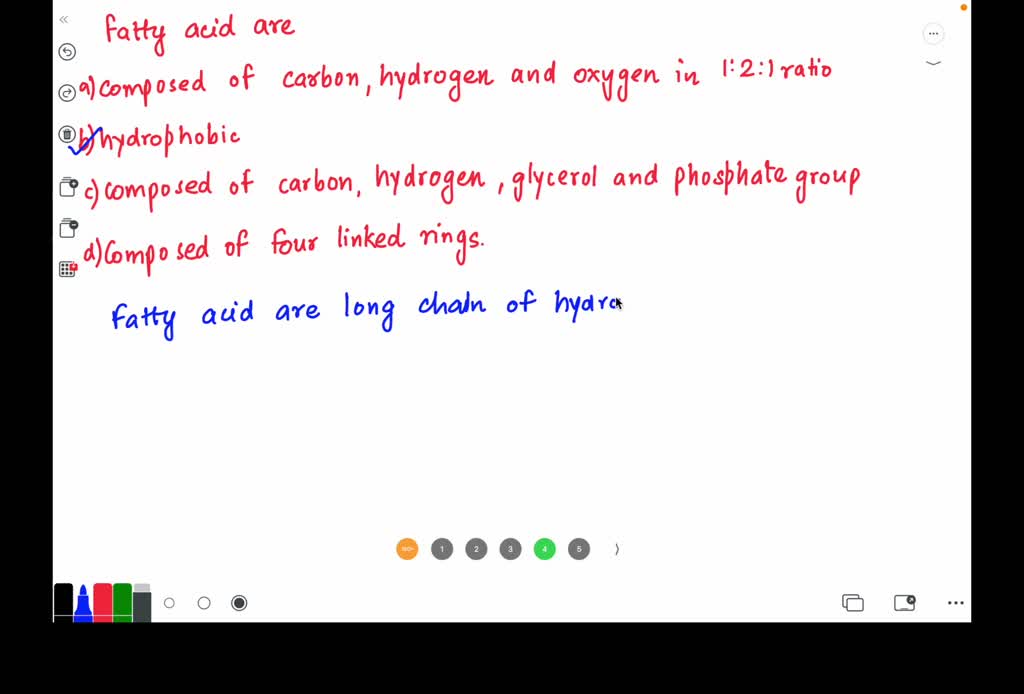 Fatty acid are
a) composed of carbon, hydrogen and oxygen in 1:2:1 ratio
b) hydrophobic
c) composed of carbon, hydrogen, glycerol and phosphate group
d) Composed of four linked rings.
Fatty acid are long chain of hydro
1 2 3 4 5